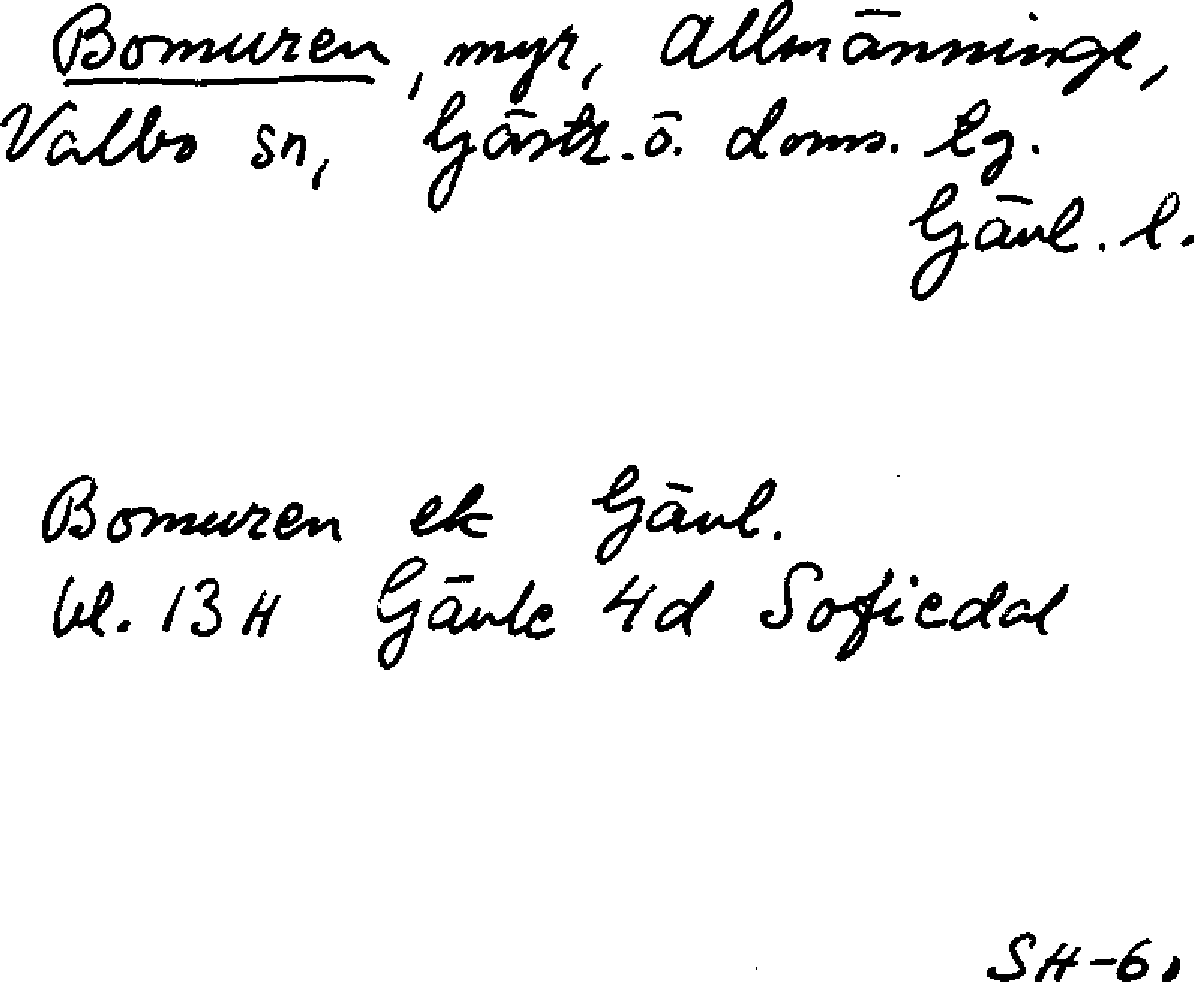 Bomuren, myr, Allmänninge,
Valbo sn, Gästr. ö. doms. lg.
Gävl. l.
Bomuren ek Gävl.
bl. 13H Gävle 4d Sofiedal
SH-6